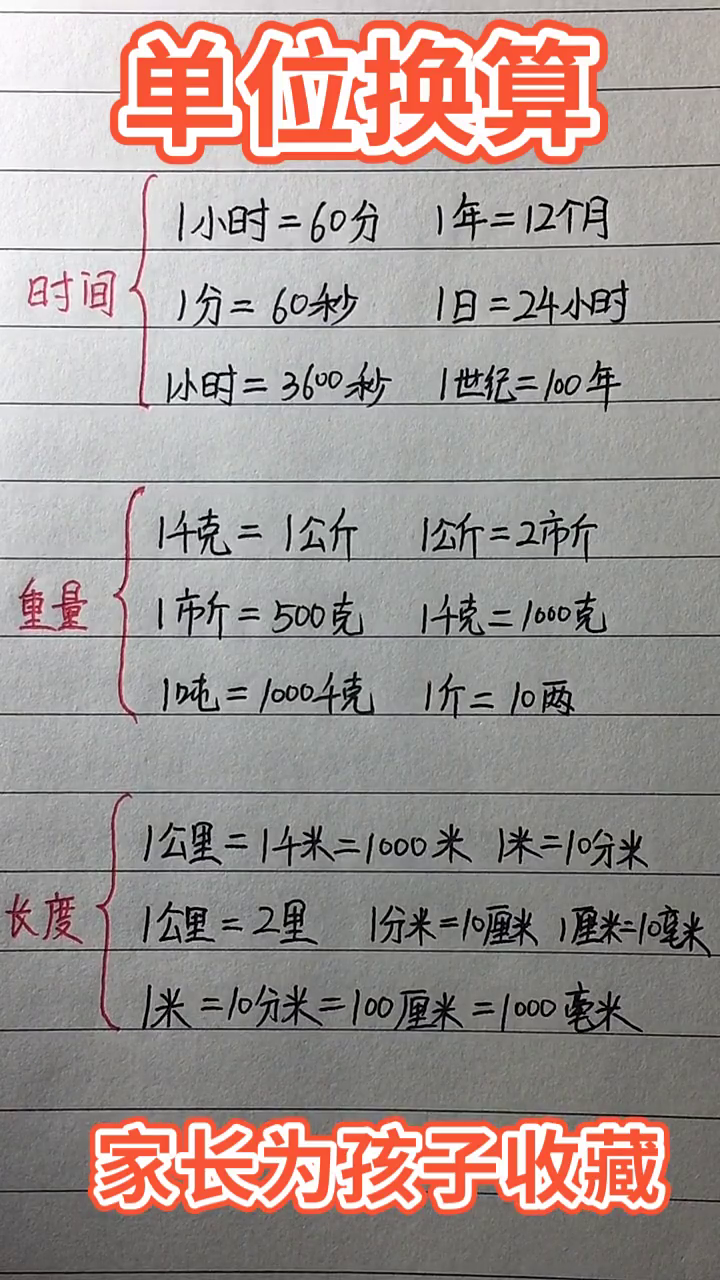 单位换算
时间
1小时=60分 1年=12个月
1分=60秒 1日=24小时
1小时=3600秒 1世纪=100年
重量
1千克=1公斤 1公斤=2市斤
1市斤=500克 1千克=1000克
1吨=1000千克 1斤=10两
长度
1公里=1千米=1000米 1米=10分米
1公里=2里 1分米=10厘米 1厘米=10毫米
1米=10分米=100厘米=1000毫米
家长为孩子收藏